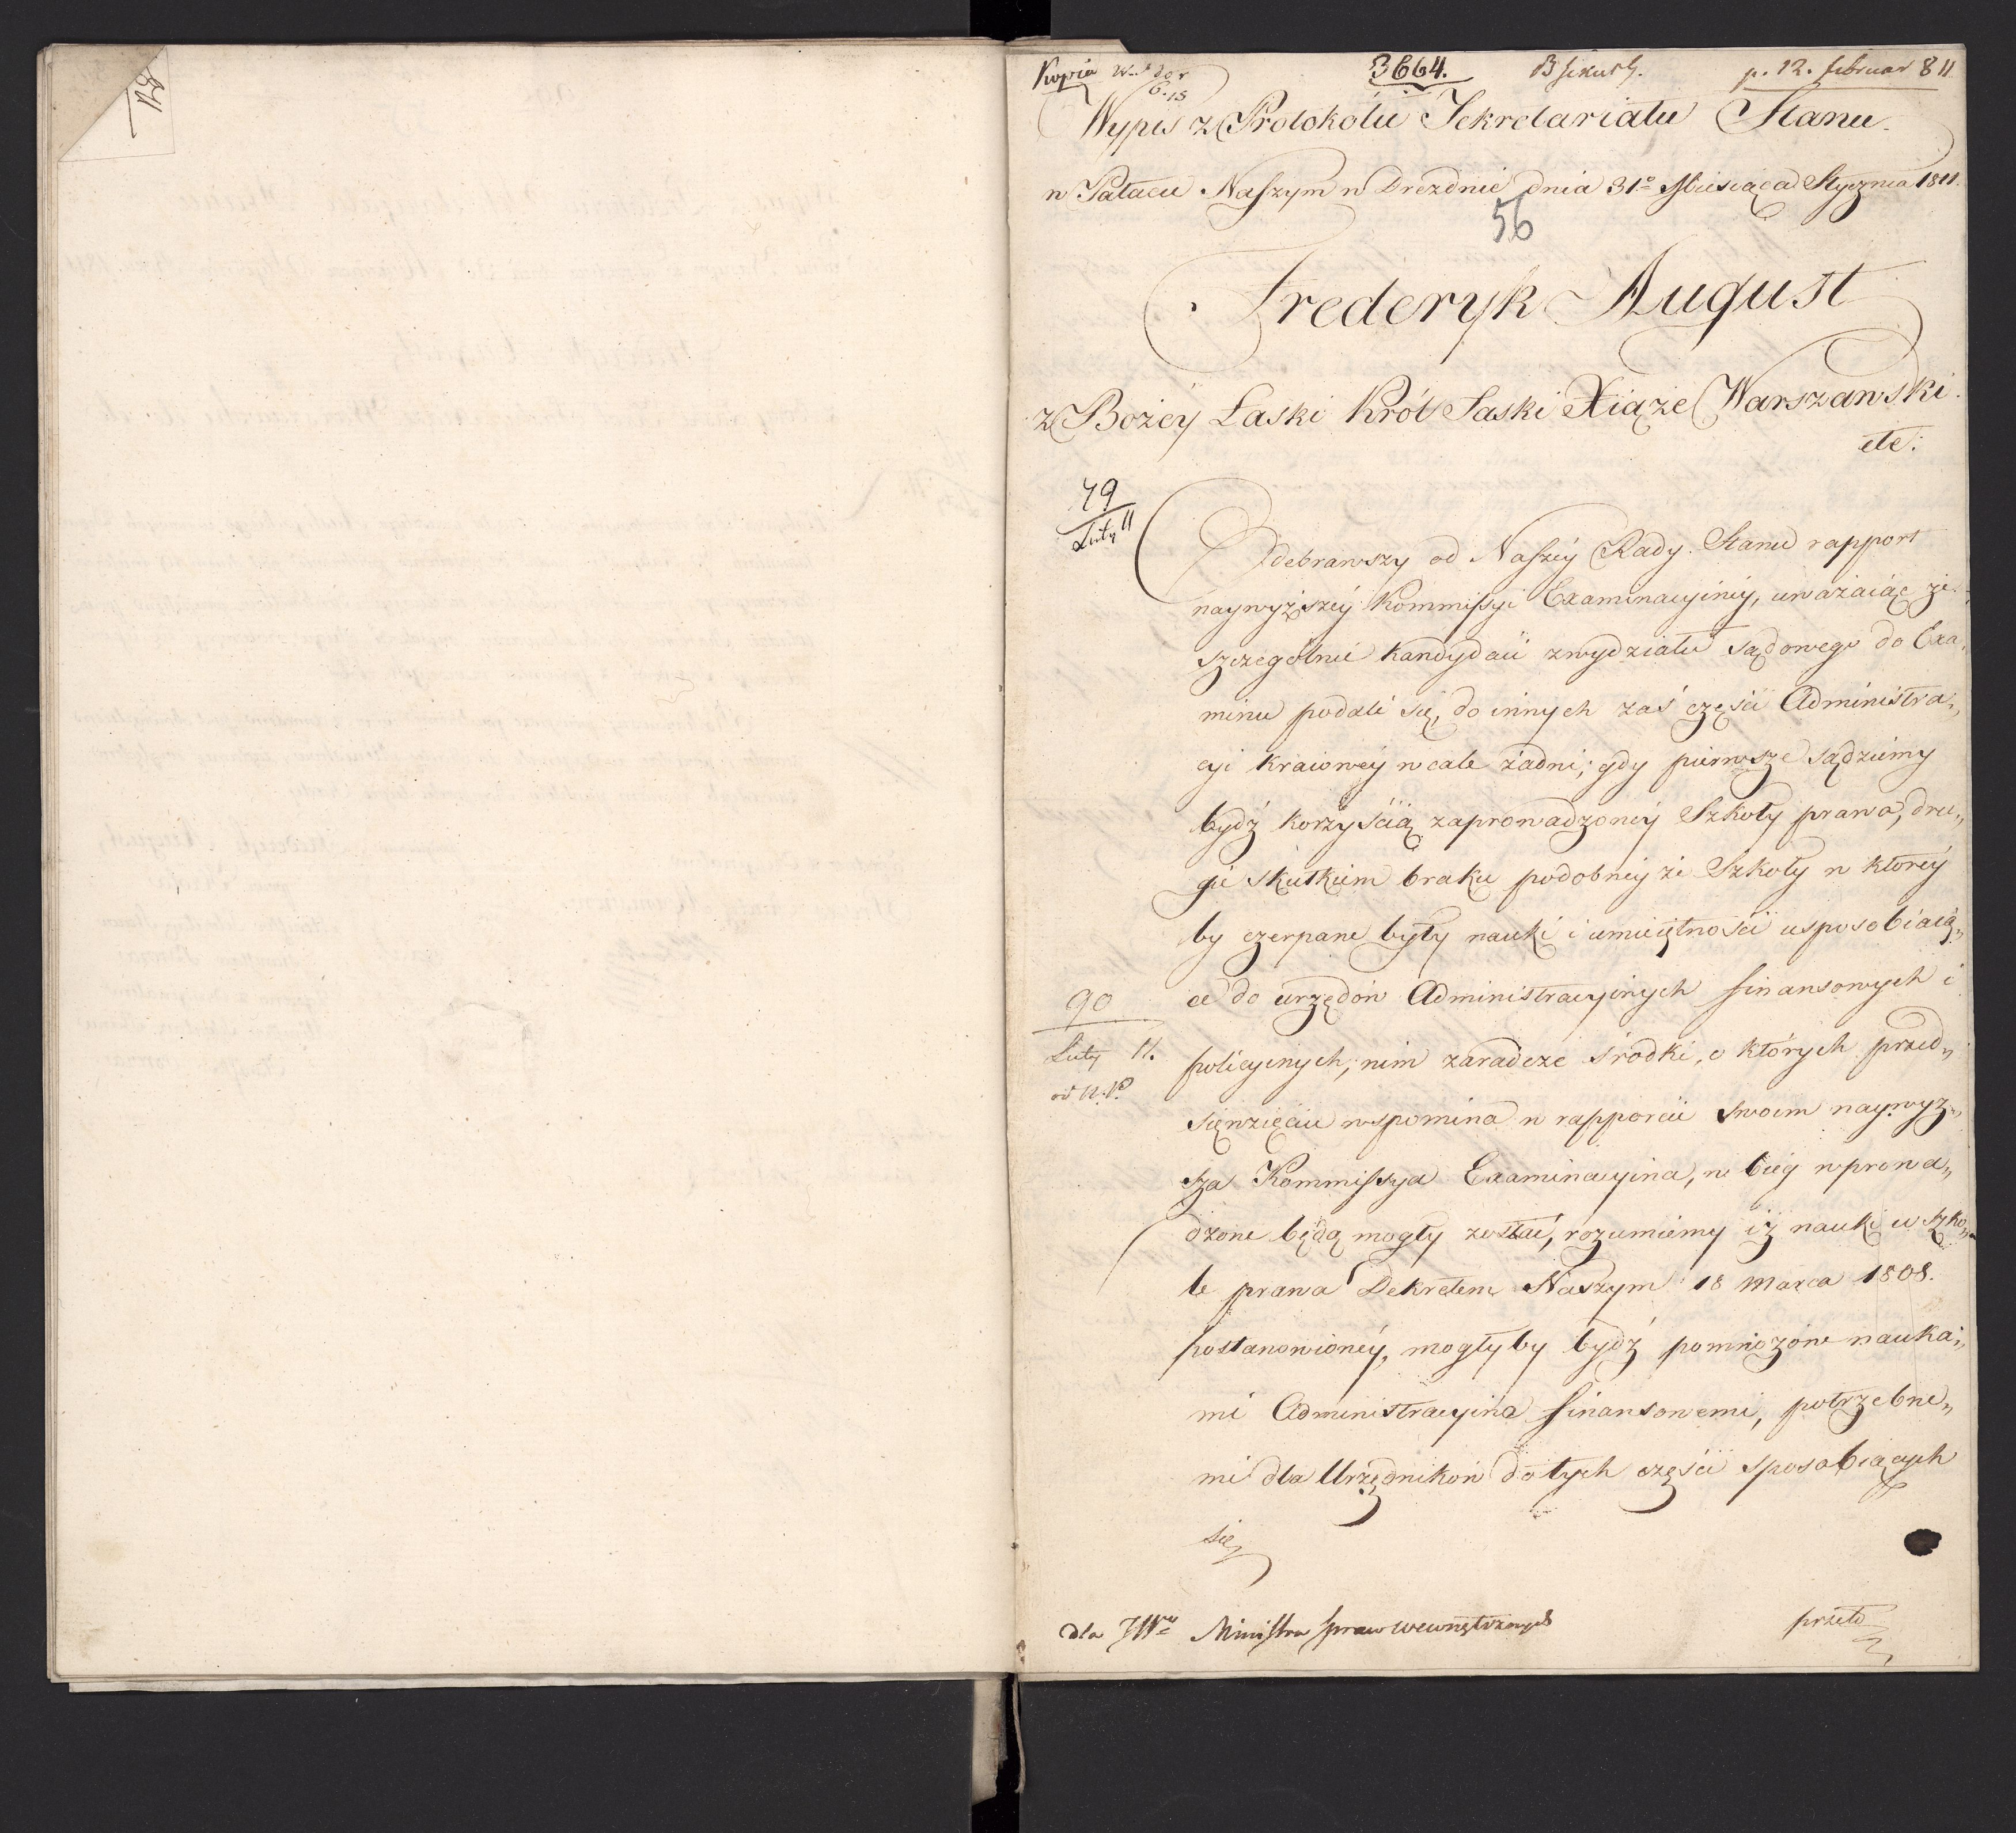 Kopia
3664.
p. 12. februar 811
Wypis z Protokółu Sekretariatu Stanu.
w Pałacu Naszym w Dreźnie dnia 31º Miesiąca Stycznia 1811.
56
Frederyk August
z Bożey Łaski Król Saski Xiąże Warszawski
etc:
79
Luty 11
Odebrawszy od Naszéy Rady Stanu rapport
naywyższéy Kommissyi Examinacyinéy, uważaiąc że
szczególnie kandydaci z wydziału sądowego do Exa„
minu podali się, do innych zaś części Administra„
cyi kraiowéy wcale żadni; gdy pierwsze sądziemy
bydź korzyścią zaprowadzonéy Szkoły prawa, dru„
gie skutkiem braku podobnéy że Szkoły w któréy
by czerpane były nauki i umieiętności usposobiaią„
ce do urzędów Administracyinych finansowych i
90
Luty 11.
policyinych; nim zaradcze środki, o których przed„
sięwzięciu wspomina w rapporcie swoim naywyż„
sza Kommissya Examinacyina, w bieg wprowa„
dzone będą mogły zostać, rozumiemy iż nauki w szko„
le prawa Dekretem Naszym 18 Marca 1808.
postanowionéy, mogłyby bydź pomnożone nauka„
mi Administracyino finansowemi, potrzebne„
mi dla Urzędników do tych części sposobiących
się
dla JWº Ministra Spraw wewnętrznych
przeto